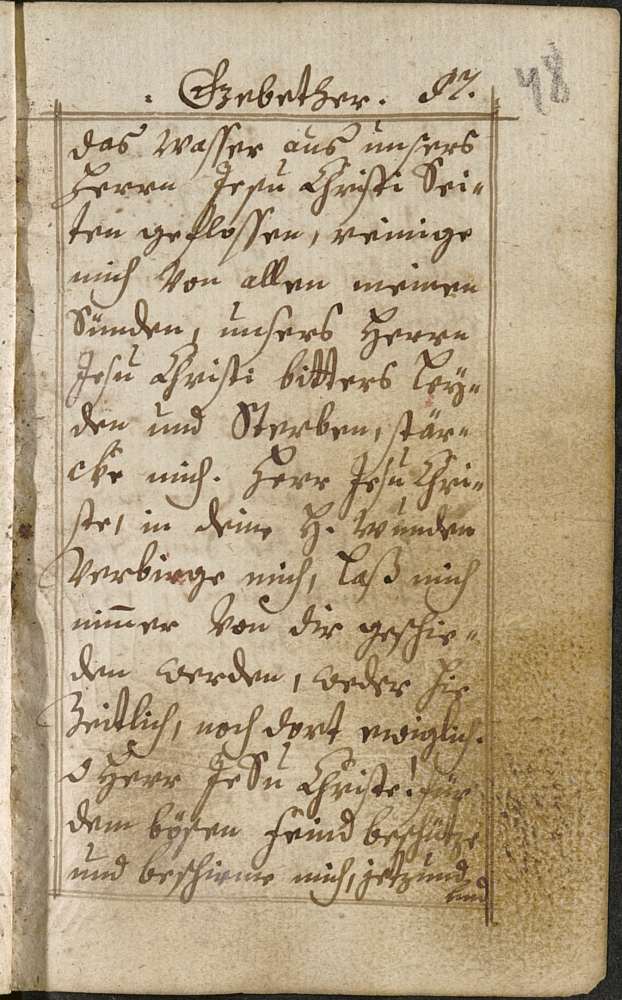 Gebether. 87. 48
das Wasser aus unsers
Herrn Jesu Christi Sei=
ten geflossen, reinige
mich Von allen meinen
Sünden, unsers Herrn
Jesu Christi bitters Ley=
den und Sterben, stär=
cke mich. Herr Jesu Chri=
ste, in deine H. Wunden
Verbirge mich, laß mich
nim̄er Von dir geschie=
den werden, weder hie
Zeitlich, noch dort ewiglich.
O Herr JeSu Christe! für
dem bösen Feind beschütze
und beschirme mich, jetzund
und